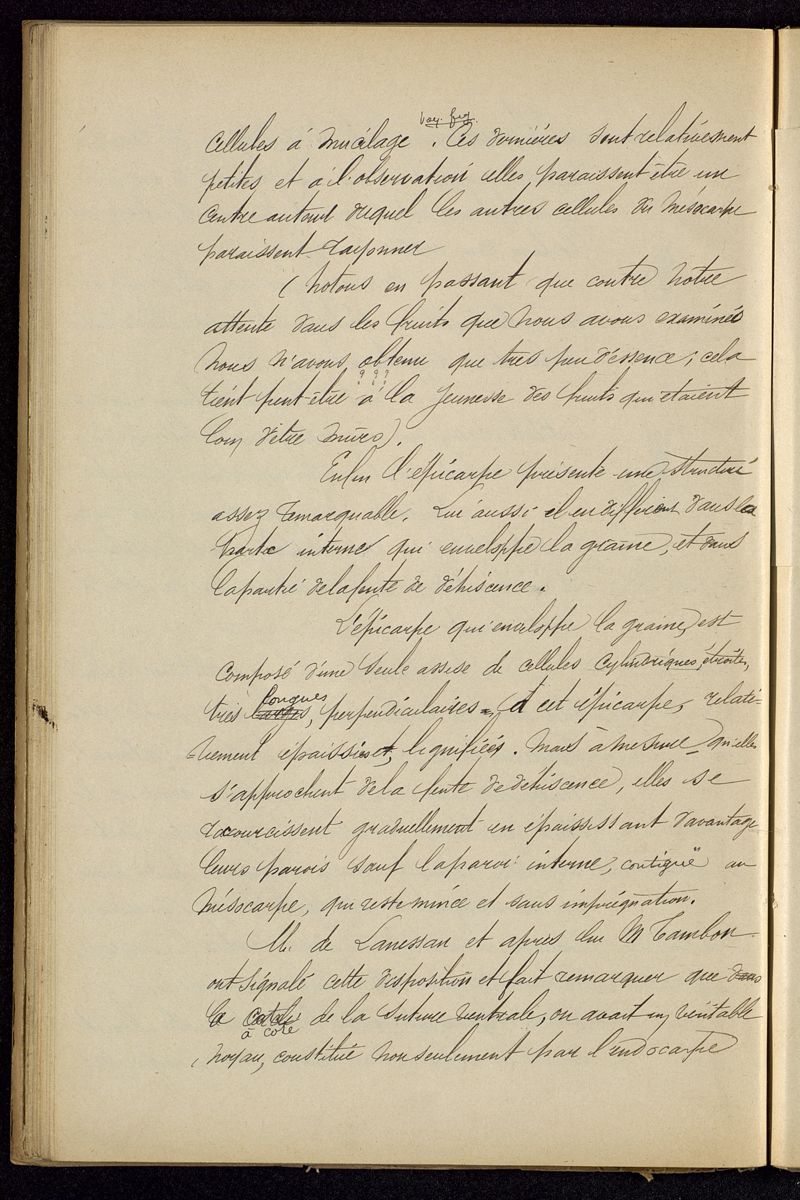 voy. fig.
cellules à mucilage. Ces dernières sont relativement
petites et à l'observation elles paraissent être un
centre autour duquel les autres cellules du mésocarpe
paraissent rayonner
(Notons en passant que contre notre
attente dans les fruits que nous avons examinés
nous n'avons obtenu que très peu d'essence; cela
? ? ?
tient peut-être à la jeunesse des fruits qui étaient
loin d'être mûrs).
Enfin l'épicarpe présente une structure
assez remarquable. Lui aussi il en différent dans la
partie interne qui enveloppe la graine, et dans
la partie de la fente de déhiscence.
L'épicarpe qui enveloppe la graine, est
composé d'une seule assise de cellules cylindriques, étroites,
longues
très larges, perpendiculaires à cet épicarpe, relati-
-vement épaissies et lignifiées. Mais à mesure qu'elles
s'approchent de la fente de déhiscence, elles se
racourcissent graduellement en épaississant davantage
leurs parois sauf la paroi interne, contiguë au
mésocarpe, qui reste mince et sans imprégnation.
M. de Lanessan et après lui M Tambon
ont signalé cette disposition et fait remarquer que dans
le de la suture ventrale, on avait un véritable
à côté
noyau, constitué non seulement par l'endocarpe